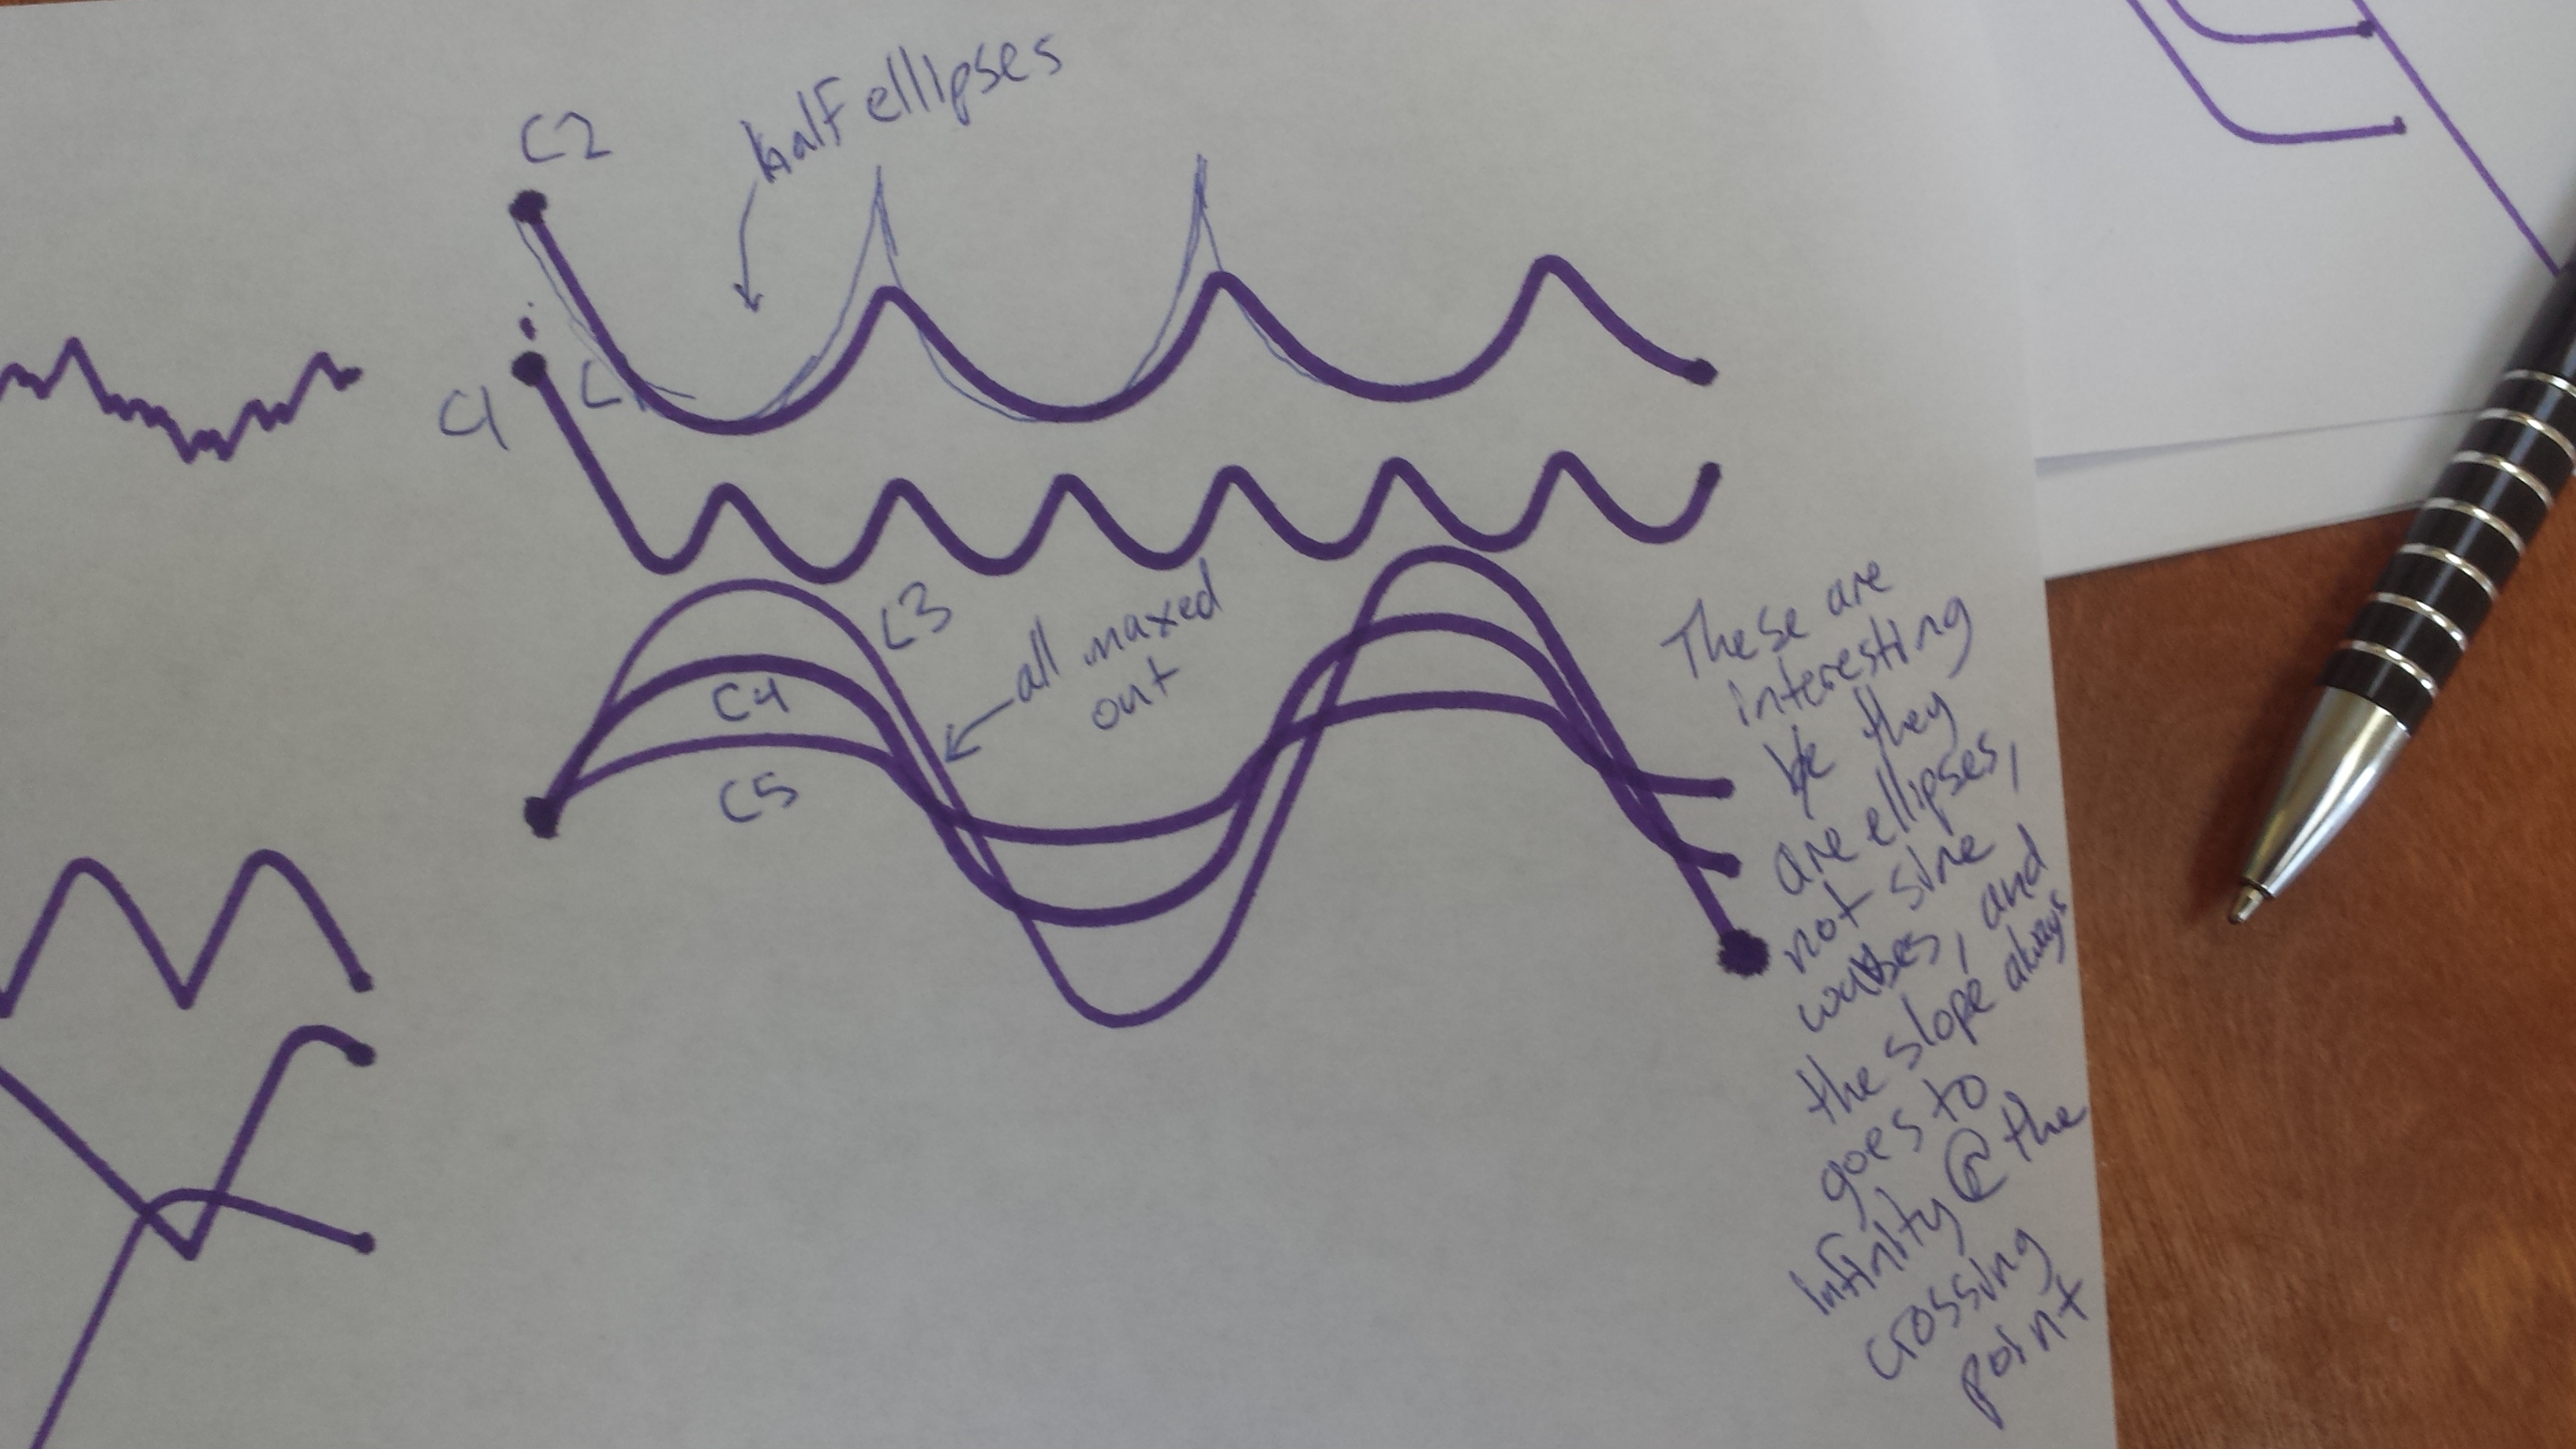 C2
half ellipses
C1
C3
all maxed
out
C4
C5
These are
interesting
b/c they
are ellipses,
not sine
waves, and
the slope always
goes to
infinity @ the
crossing
point